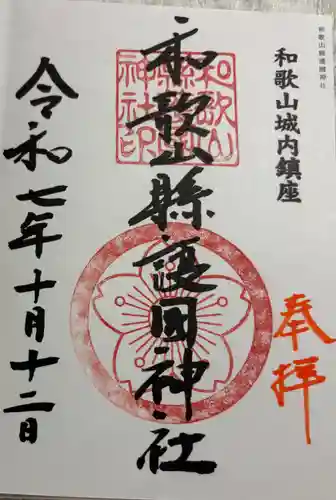 和歌山縣護國神社
和歌山城内鎮座
奉拝
和歌山縣護国神社
和歌山縣神社印
令和七年十月十二日